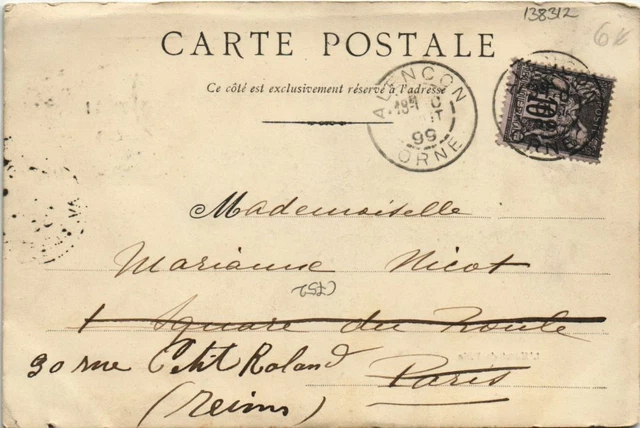 138312
6
CARTE POSTALE
Ce côté est exclusivement réservé à l'adresse
ALENCON
99
ORNE
10
Mademoiselle
Marianne Nicot
C752
1 Square du Roule
30 rue Petit Roland
Paris
(Reims)